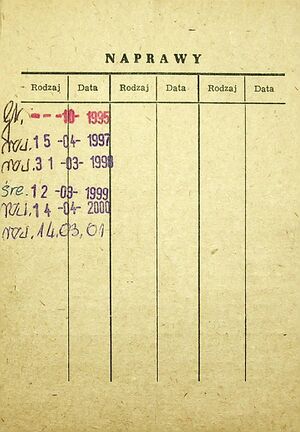 NAPRAWY
Rodzaj Data Rodzaj Data Rodzaj Data
Gł. - - - 10 - 1995
15 -04- 1997
31 -03- 1998
śre. 12 -03- 1999
14 -04- 2000
14.03.01